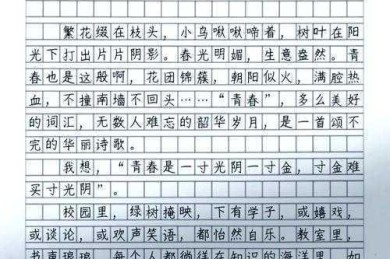 繁花缀在枝头，小鸟啾啾啼着，树叶在阳
光下打出片片阴影。春光明媚，生意盎然。青
春也是这般啊，花团锦簇，朝阳似火，满腔热
血，不撞南墙不回头……“青春”，多么美好
的词汇，无数人难忘的韶华岁月，是一首颂不
完的华丽诗歌。
我想，“青春是一寸光阴一寸金，寸金难
买寸光阴”。
校园里，绿树掩映，下有学子，或嬉戏，
或谈论，或欢声笑语，都怡然自乐。教室里，
书声琅琅，每个人都徜徉在知识的海洋里，如